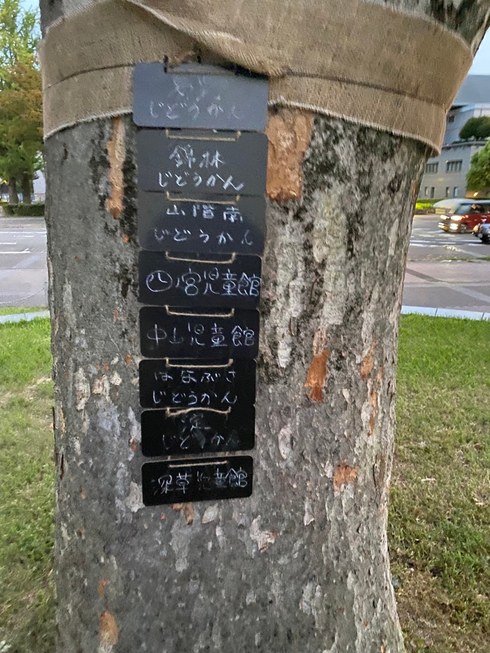 じどうかん
錦林
じどうかん
山階南
じどうかん
宮児童館
中山児童館
はなぶさ
じどうかん
淀
じどうかん
深草児童館